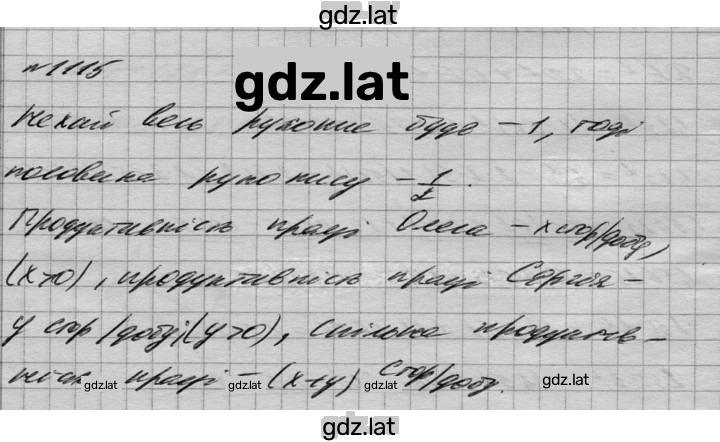 gdz.lat
№1115
gdz.lat
Нехай весь рукопис буде – 1, тоді
половина рукопису – 1/2.
Продуктивність праці Олега – x стор/добу,
(x>0), продуктивність праці Сергія –
y стор/добу (y>0), спільна продуктив–
ність праці – (x+y) стор/добу.
gdz.lat gdz.lat gdz.lat gdz.lat
gdz.lat